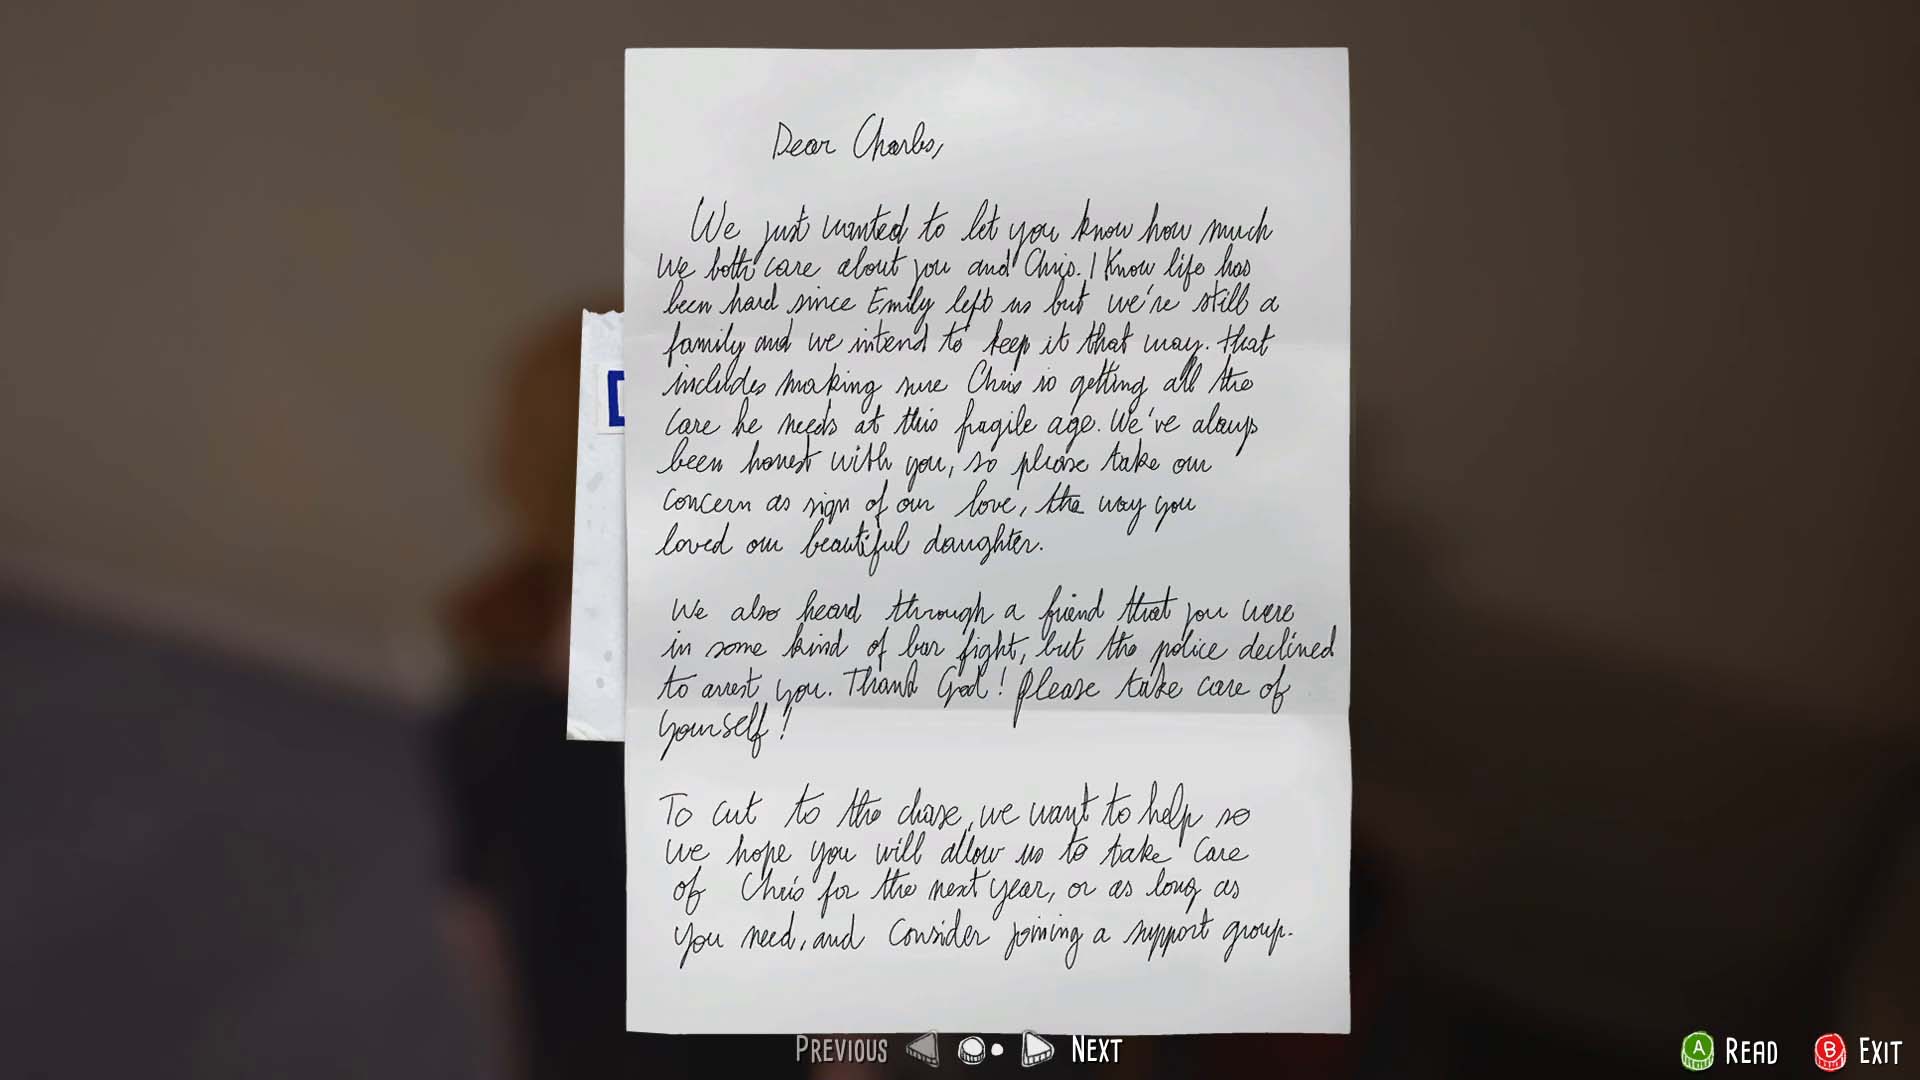 Dear Charles,
We just wanted to let you know how much
we both care about you and Chris. I know life has
been hard since Emily left us but we're still a
family and we intend to keep it that way. that
includes making sure Chris is getting all the
care he needs at this fragile age. We've always
been honest with you, so please take our
concern as sign of our love, the way you
loved our beautiful daughter.
We also heard through a friend that you were
in some kind of bar fight, but the police declined
to arrest you. Thank God! please take care of
yourself!
To cut to the chase, we want to help so
we hope you will allow us to take care
of Chris for the next year, or as long as
you need, and consider joining a support group.
PREVIOUS NEXT
A READ B EXIT